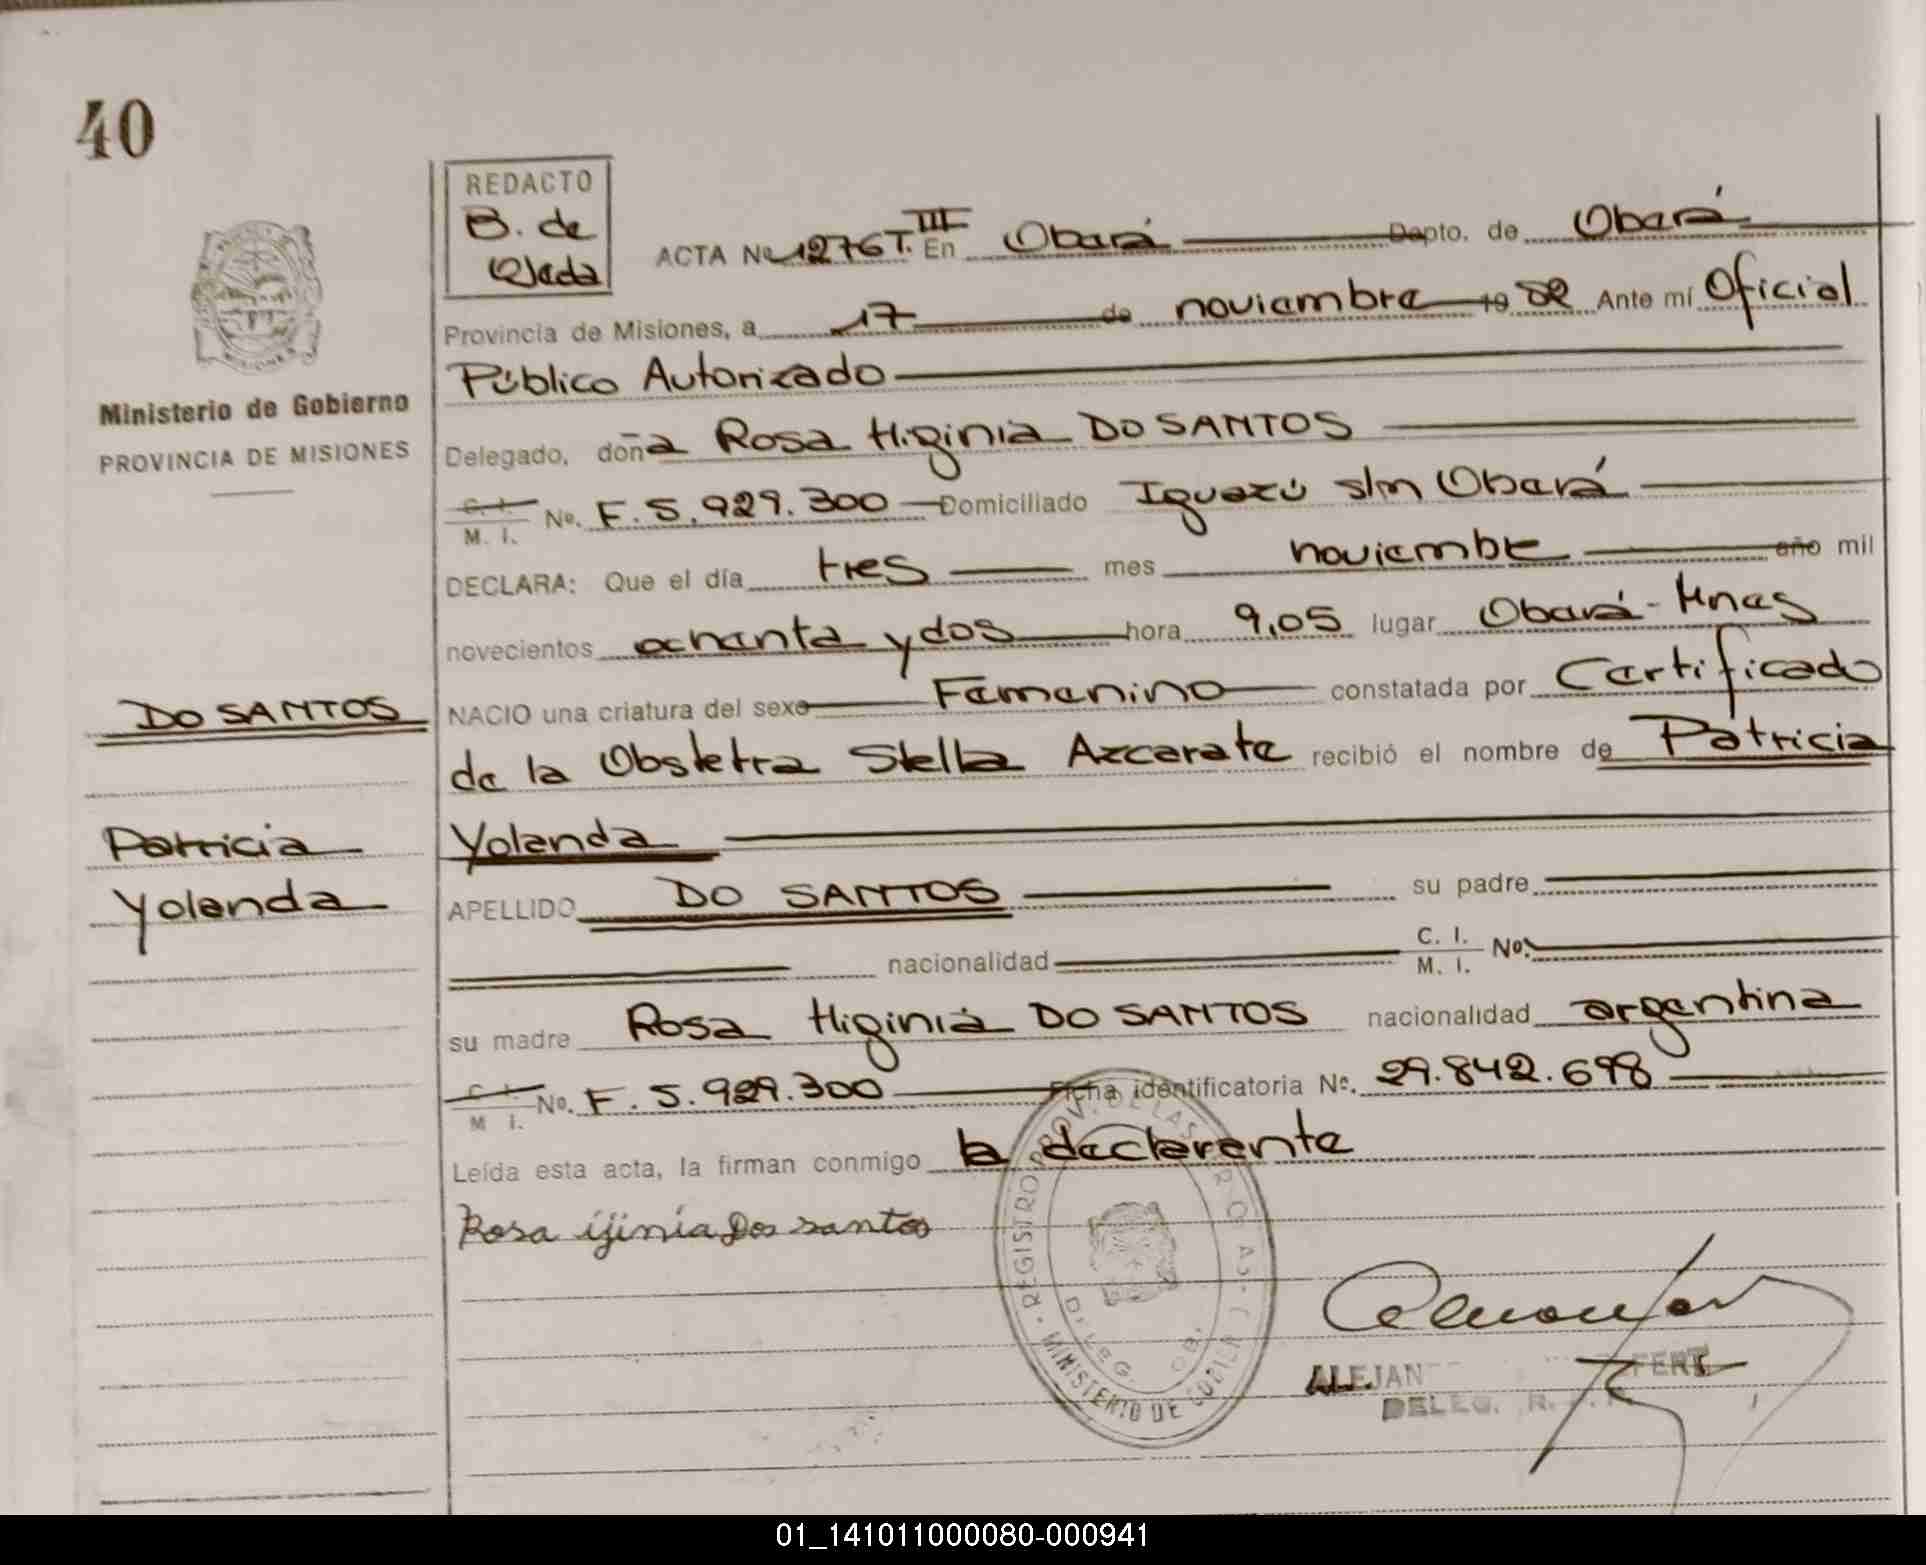 40
REDACTO
B. de
Ojeda
ACTA Nº 1276 T. III En Oberá Dapto. de Oberá
Provincia de Misiones, a 17 de noviembre 19 82 Ante mí Oficial
Público Autorizado
Ministerio de Gobierno
PROVINCIA DE MISIONES
Delegado, doña Rosa Higinia DO SANTOS
C. I.
M. I. Nº. F. 5.929.300 Domiciliado Iguazú s/n Oberá
DECLARA: Que el día tres mes noviembre año mil
novecientos ochenta y dos hora 9,05 lugar Oberá - Mnes
NACIO una criatura del sexo Femenino constatada por Certificado
de la Obstetra Stella Azcarate recibió el nombre de Patricia
Yolanda
DO SANTOS
Patricia
Yolanda
APELLIDO DO SANTOS su padre
nacionalidad C. I.
M. I. Nº.
su madre Rosa Higinia DO SANTOS nacionalidad argentina
C. I.
M I. Nº. F. 5.929.300 Ficha identificatoria Nº. 29.842.698
Leída esta acta, la firman conmigo la declarente
Rosa ijinia Dos santos
REGISTRO PROV. DE LAS
MINISTERIO DE
DELEG.
ALEJAN
FERT
DELEG. R.
01_141011000080-000941